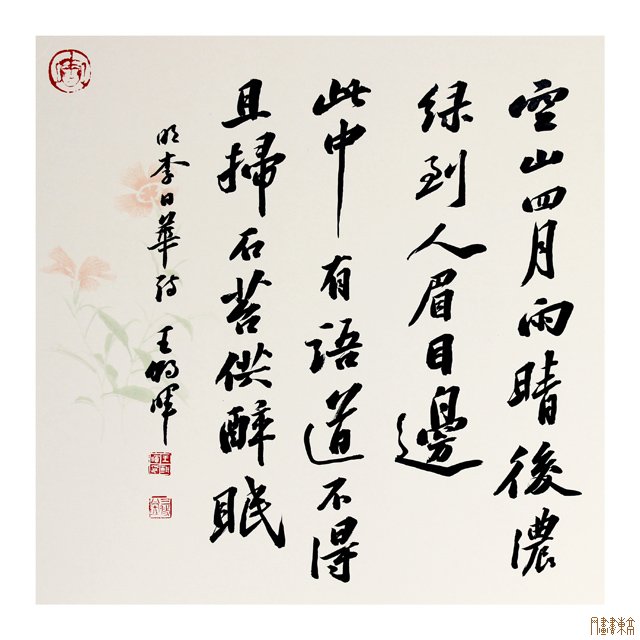 雲山四月雨晴後濃
緑到人眉目邊
此中有語道不得
且掃石苔供醉眠
明李日華詩 王